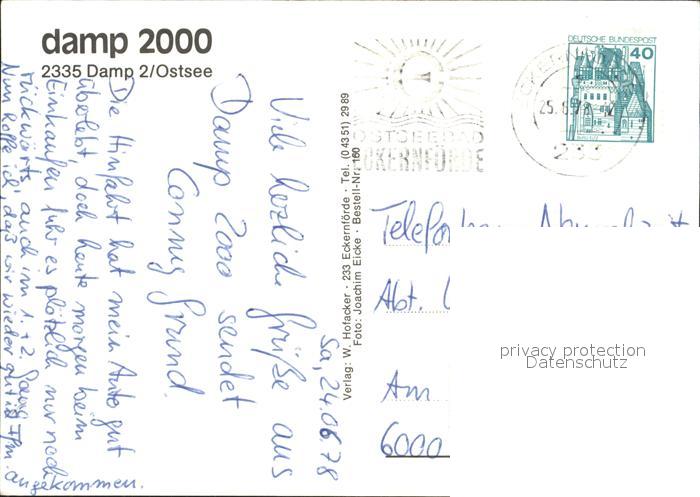 damp 2000
2335 Damp 2/Ostsee
DEUTSCHE BUNDESPOST
40
OSTSEEBAD
ECKERNFÖRDE
Sa, 24.06.78
Viele herzliche Grüße aus
Damp 2000 sendet
Conny
Die Hinfahrt hat mein Auto gut
überlebt, doch heute morgen beim
Einkaufen fuhr es plötzlich nur noch
rückwärts, auch im 1. + 2. Gang.
Nun hoffe ich, daß wir wieder gut in Ffm.
angekommen.
Verlag: W. Hofacker · 233 Eckernförde · Tel. (0 43 51) 29 89
Foto: Joachim Eicke · Bestell-Nr. 160
Abt.
Am
6000
privacy protection
Datenschutz